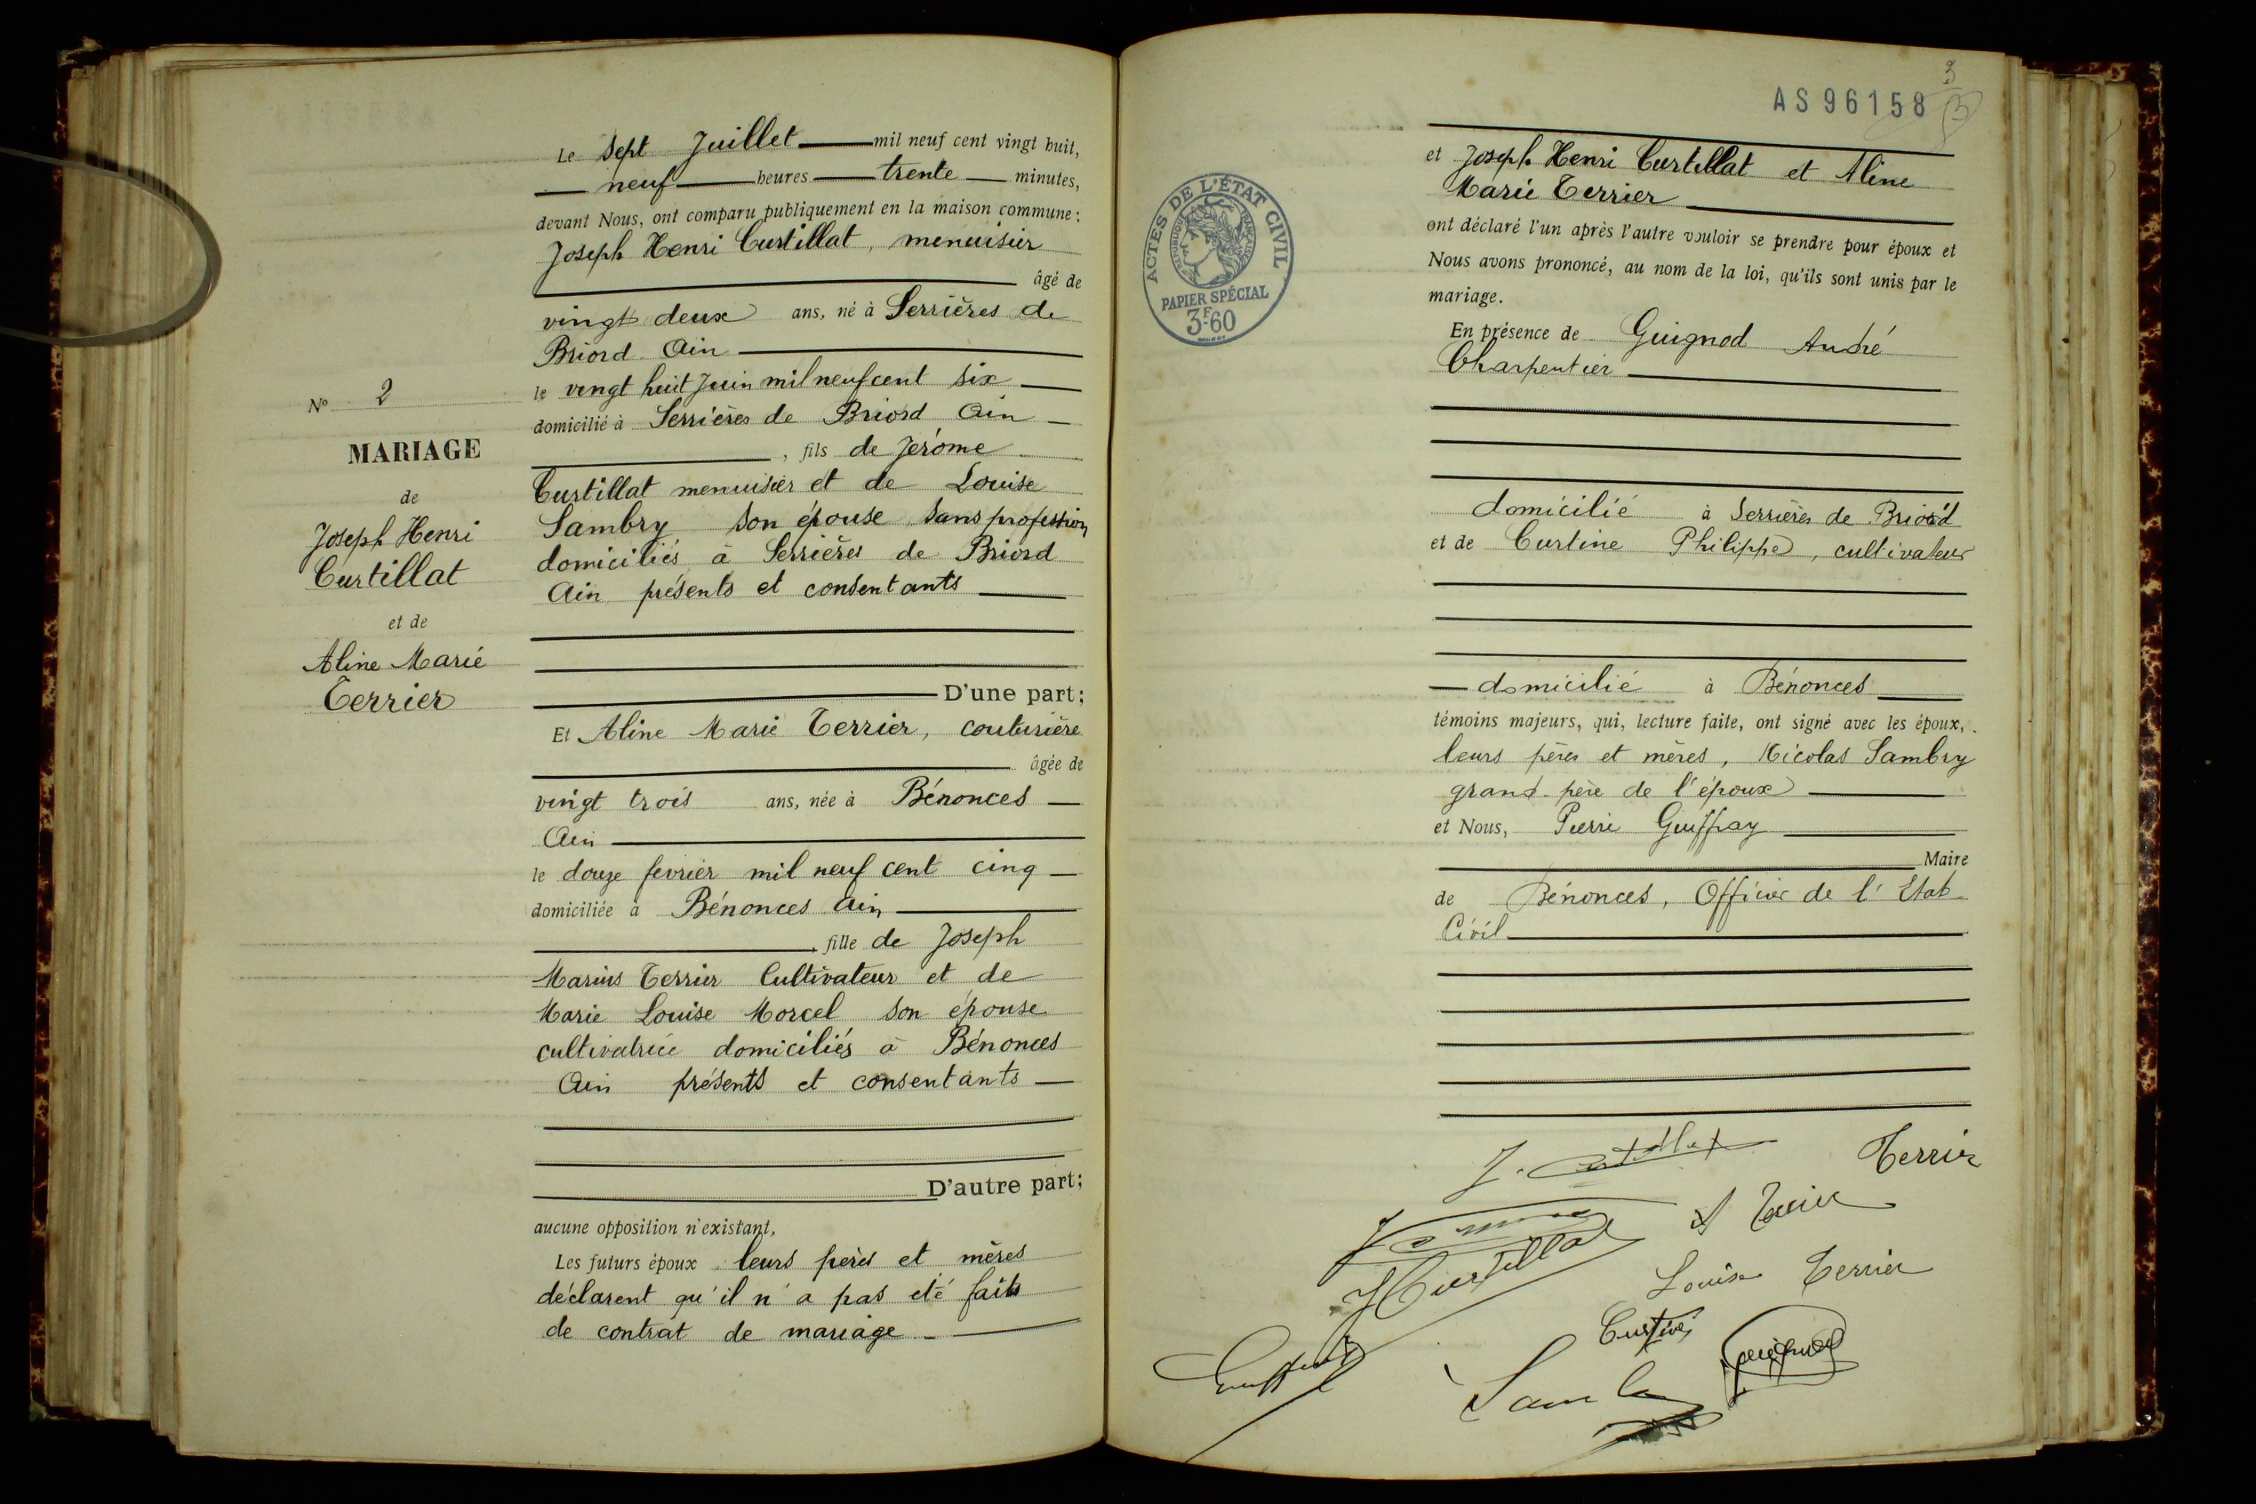 Le sept Juillet mil neuf cent vingt huit,
neuf heures trente minutes,
devant Nous, ont comparu publiquement en la maison commune :
Joseph Henri Curtillat, menuisier
âgé de
vingt deux ans, né à Serrières de
Briord Ain
le vingt huit Juin mil neuf cent six
domicilié à Serrières de Briord Ain
, fils de Jérôme
Curtillat menuisier et de Louise
Sambry son épouse sans profession
domiciliés à Serrières de Briord
Ain présents et consentants
D'une part ;
Et Aline Marie Terrier, couturière
âgée de
vingt trois ans, née à Bénonces
Ain
le douze fevrier mil neuf cent cinq
domiciliée à Bénonces Ain
, fille de Joseph
Marius Terrier Cultivateur et de
Marie Louise Morcel son épouse
cultivatrice domiciliés à Bénonces
Ain présents et consentants
D'autre part ;
aucune opposition n'existant,
Les futurs époux leurs pères et mères
déclarent qu'il n'a pas été fait
de contrat de mariage
No 2
MARIAGE
de
Joseph Henri
Curtillat
et de
Aline Marie
Terrier
AS 96158
3
ACTES DE L'ÉTAT CIVIL
RÉPUBLIQUE FRANÇAISE
PAPIER SPÉCIAL
3F60
et Joseph Henri Curtillat et Aline
Marie Terrier
ont déclaré l'un après l'autre vouloir se prendre pour époux et
Nous avons prononcé, au nom de la loi, qu'ils sont unis par le
mariage.
En présence de Guignod André
Charpentier
domicilié à Serrières de Briord
et de Curtine Philippe, cultivateur
domicilié à Bénonces
témoins majeurs, qui, lecture faite, ont signé avec les époux,
leurs pères et mères, Nicolas Sambry
grand-père de l'époux
et Nous, Pierre Guiffray
Maire
de Bénonces, Officier de l'Etat
Civil
J. Curtillat
Terrier
A Terrier
J Curtillat
Louise Terrier
Curtine
Guignod